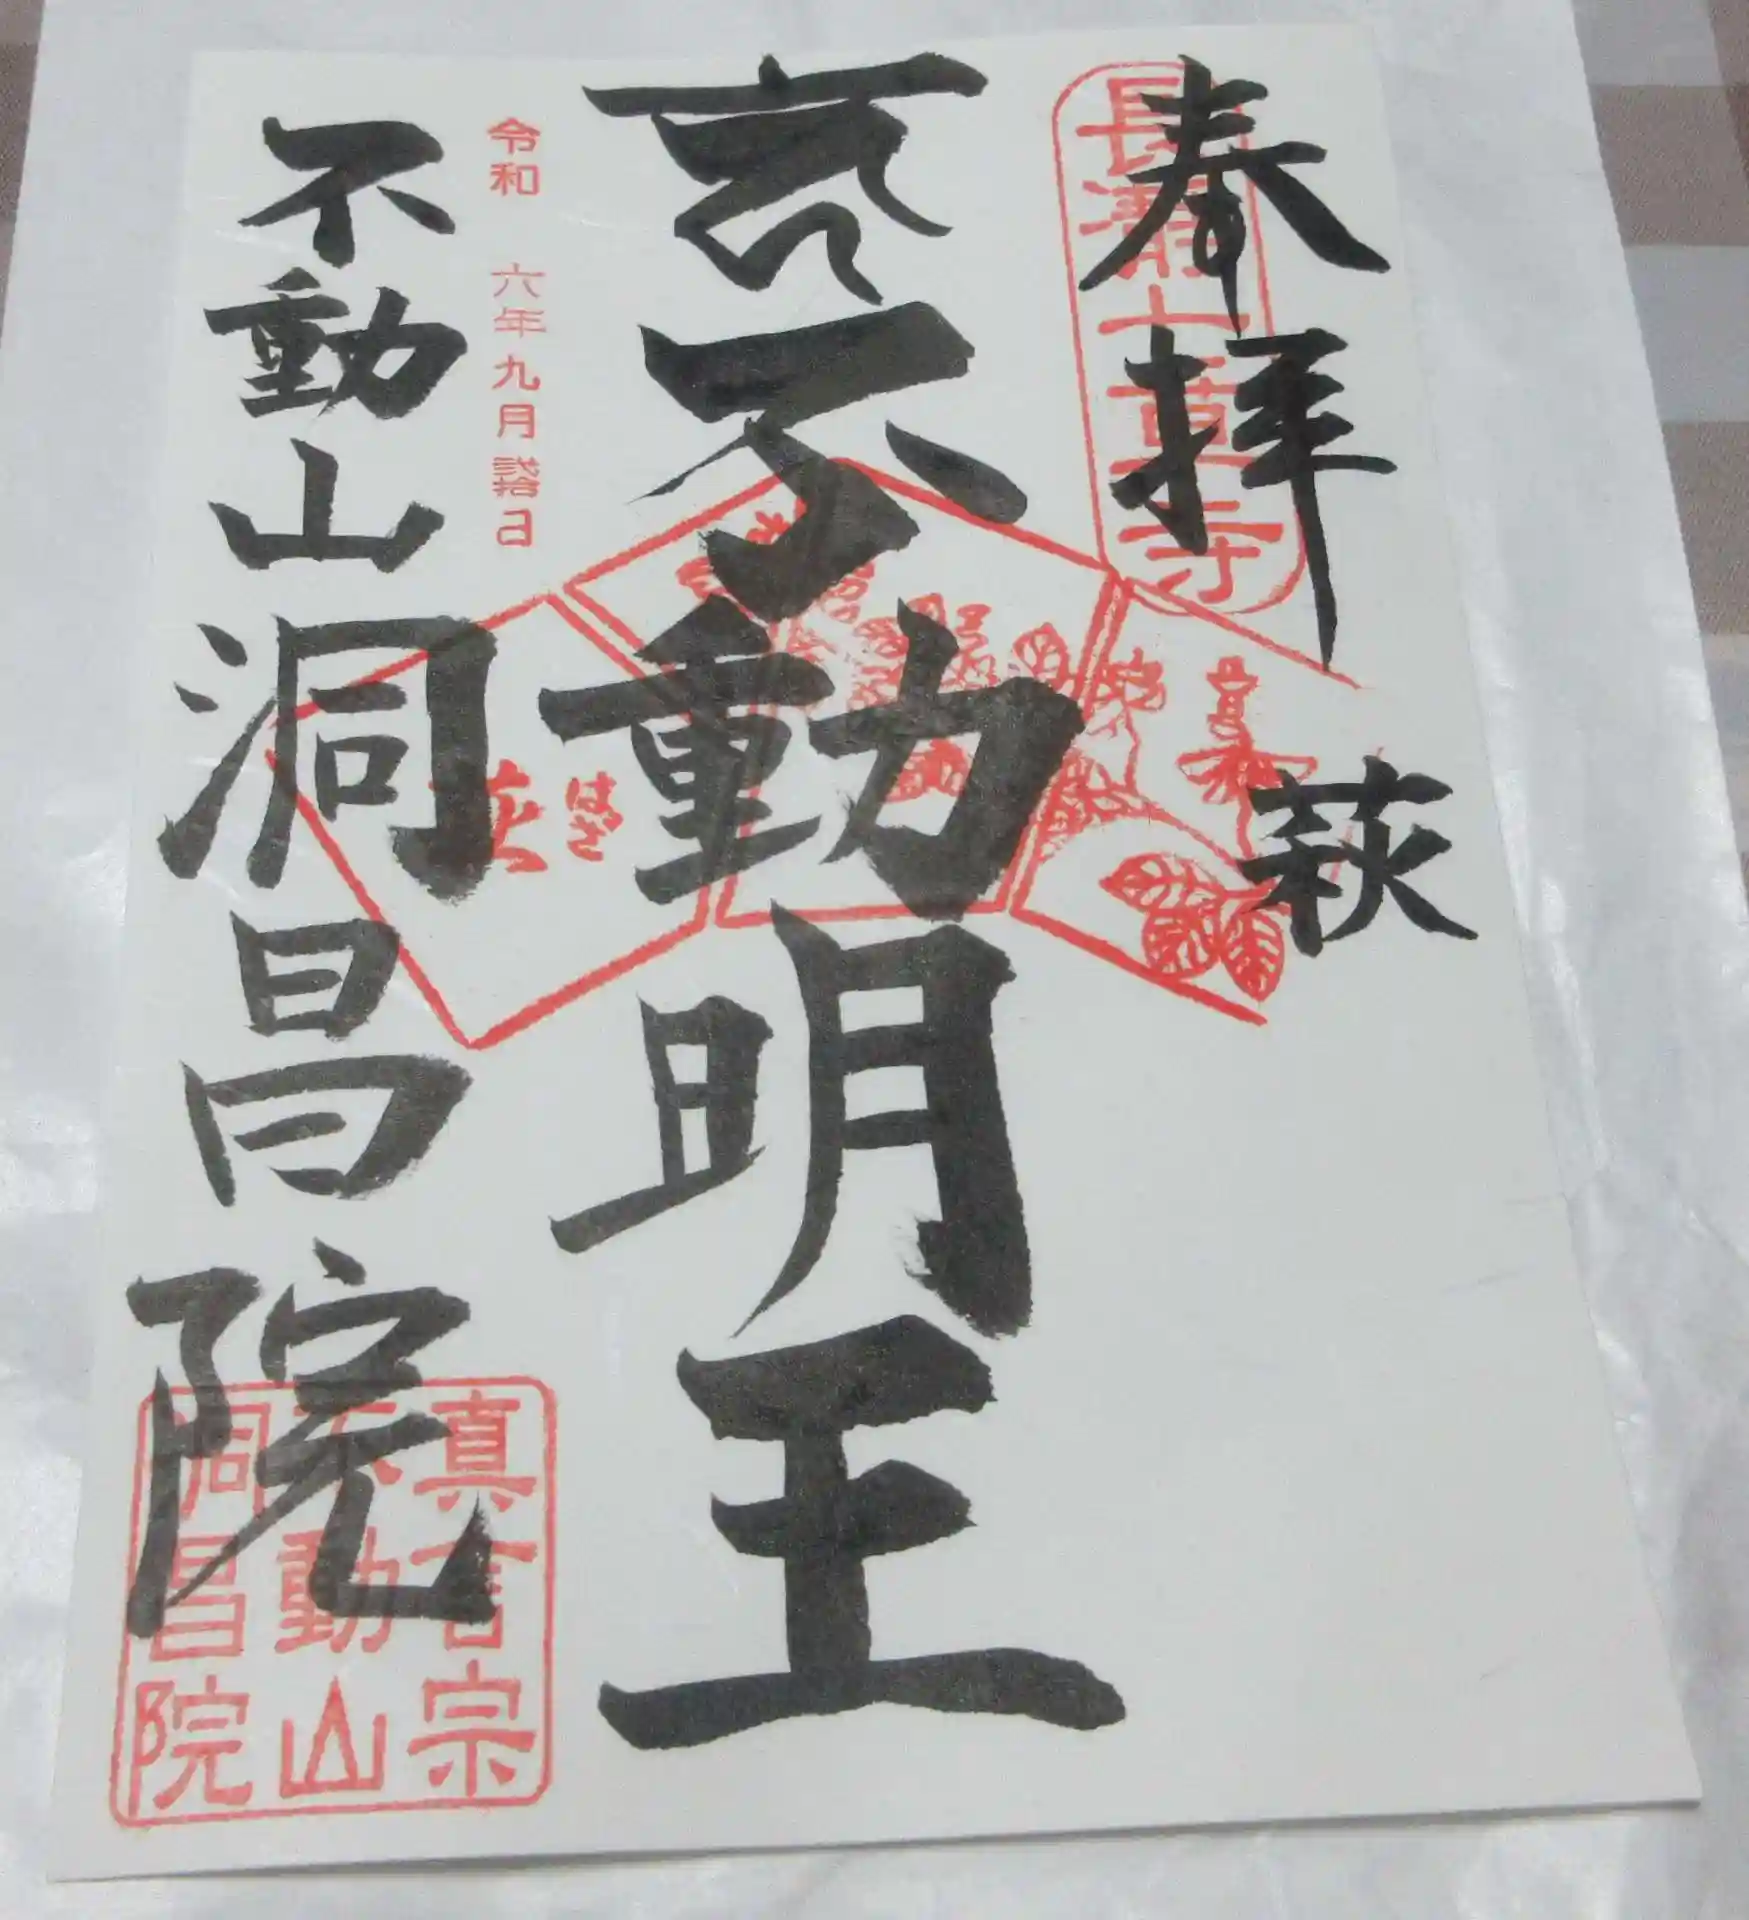 奉拝
長瀞七草寺
萩
不動明王
はぎ
萩
令和 六年九月弐拾日
不動山洞昌院
真言宗
不動山
洞昌院